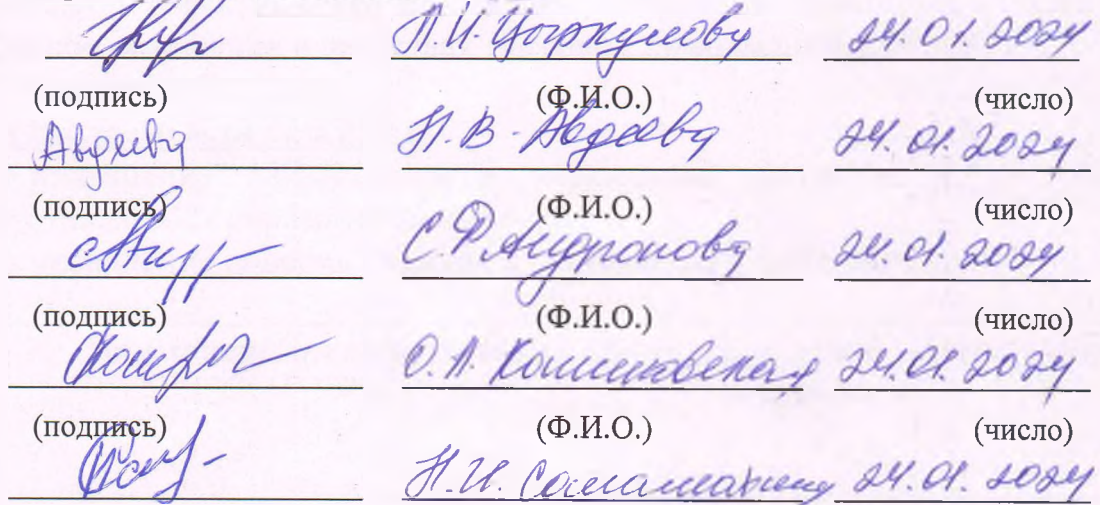 Л.И. Цыркулова 24.01.2024
(подпись) (Ф.И.О.) (число)
Авдеева Н.В. Авдеева 24.01.2024
(подпись) (Ф.И.О.) (число)
С.Ф. Андронова 24.01.2024
(подпись) (Ф.И.О.) (число)
О.А. 24.01.2024
(подпись) (Ф.И.О.) (число)
Н.И. 24.01.2024